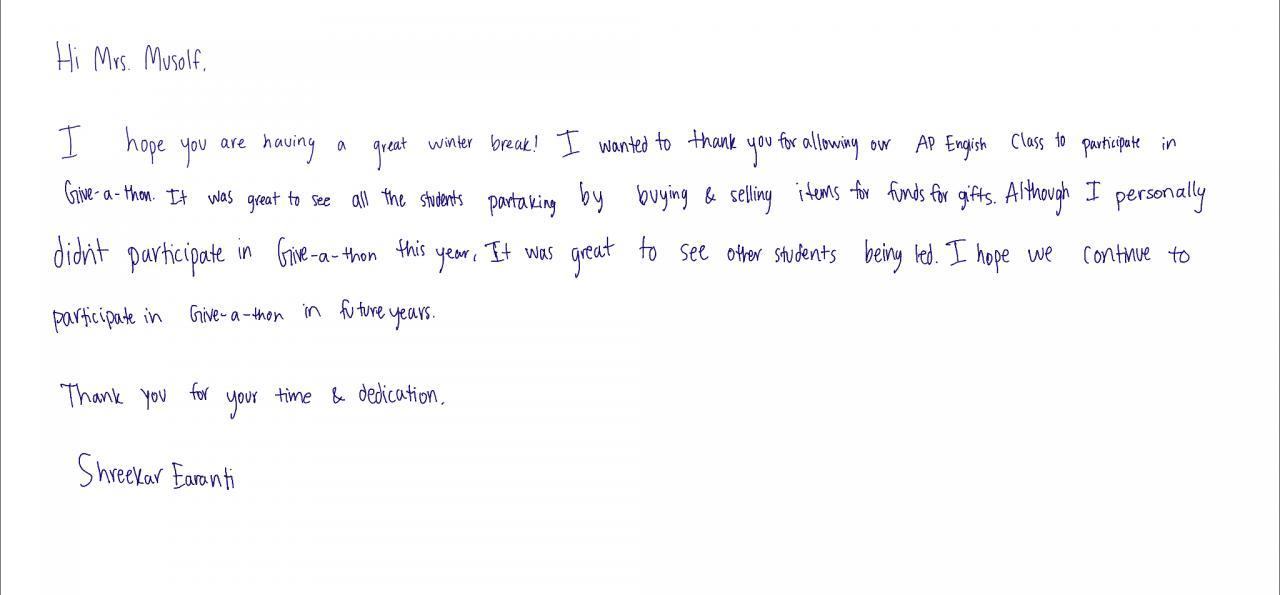 Hi Mrs. Musolf,
I hope you are having a great winter break! I wanted to thank you for allowing our AP Engish Class to participate in
Give-a-thon. It was great to see all the students partaking by buying & selling items for funds for gifts. Although I personally
didn't participate in Give-a-thon this year, It was great to see other students being led. I hope we continue to
participate in Give-a-thon in future years.
Thank you for your time & dedication.
Shreekar Earanti